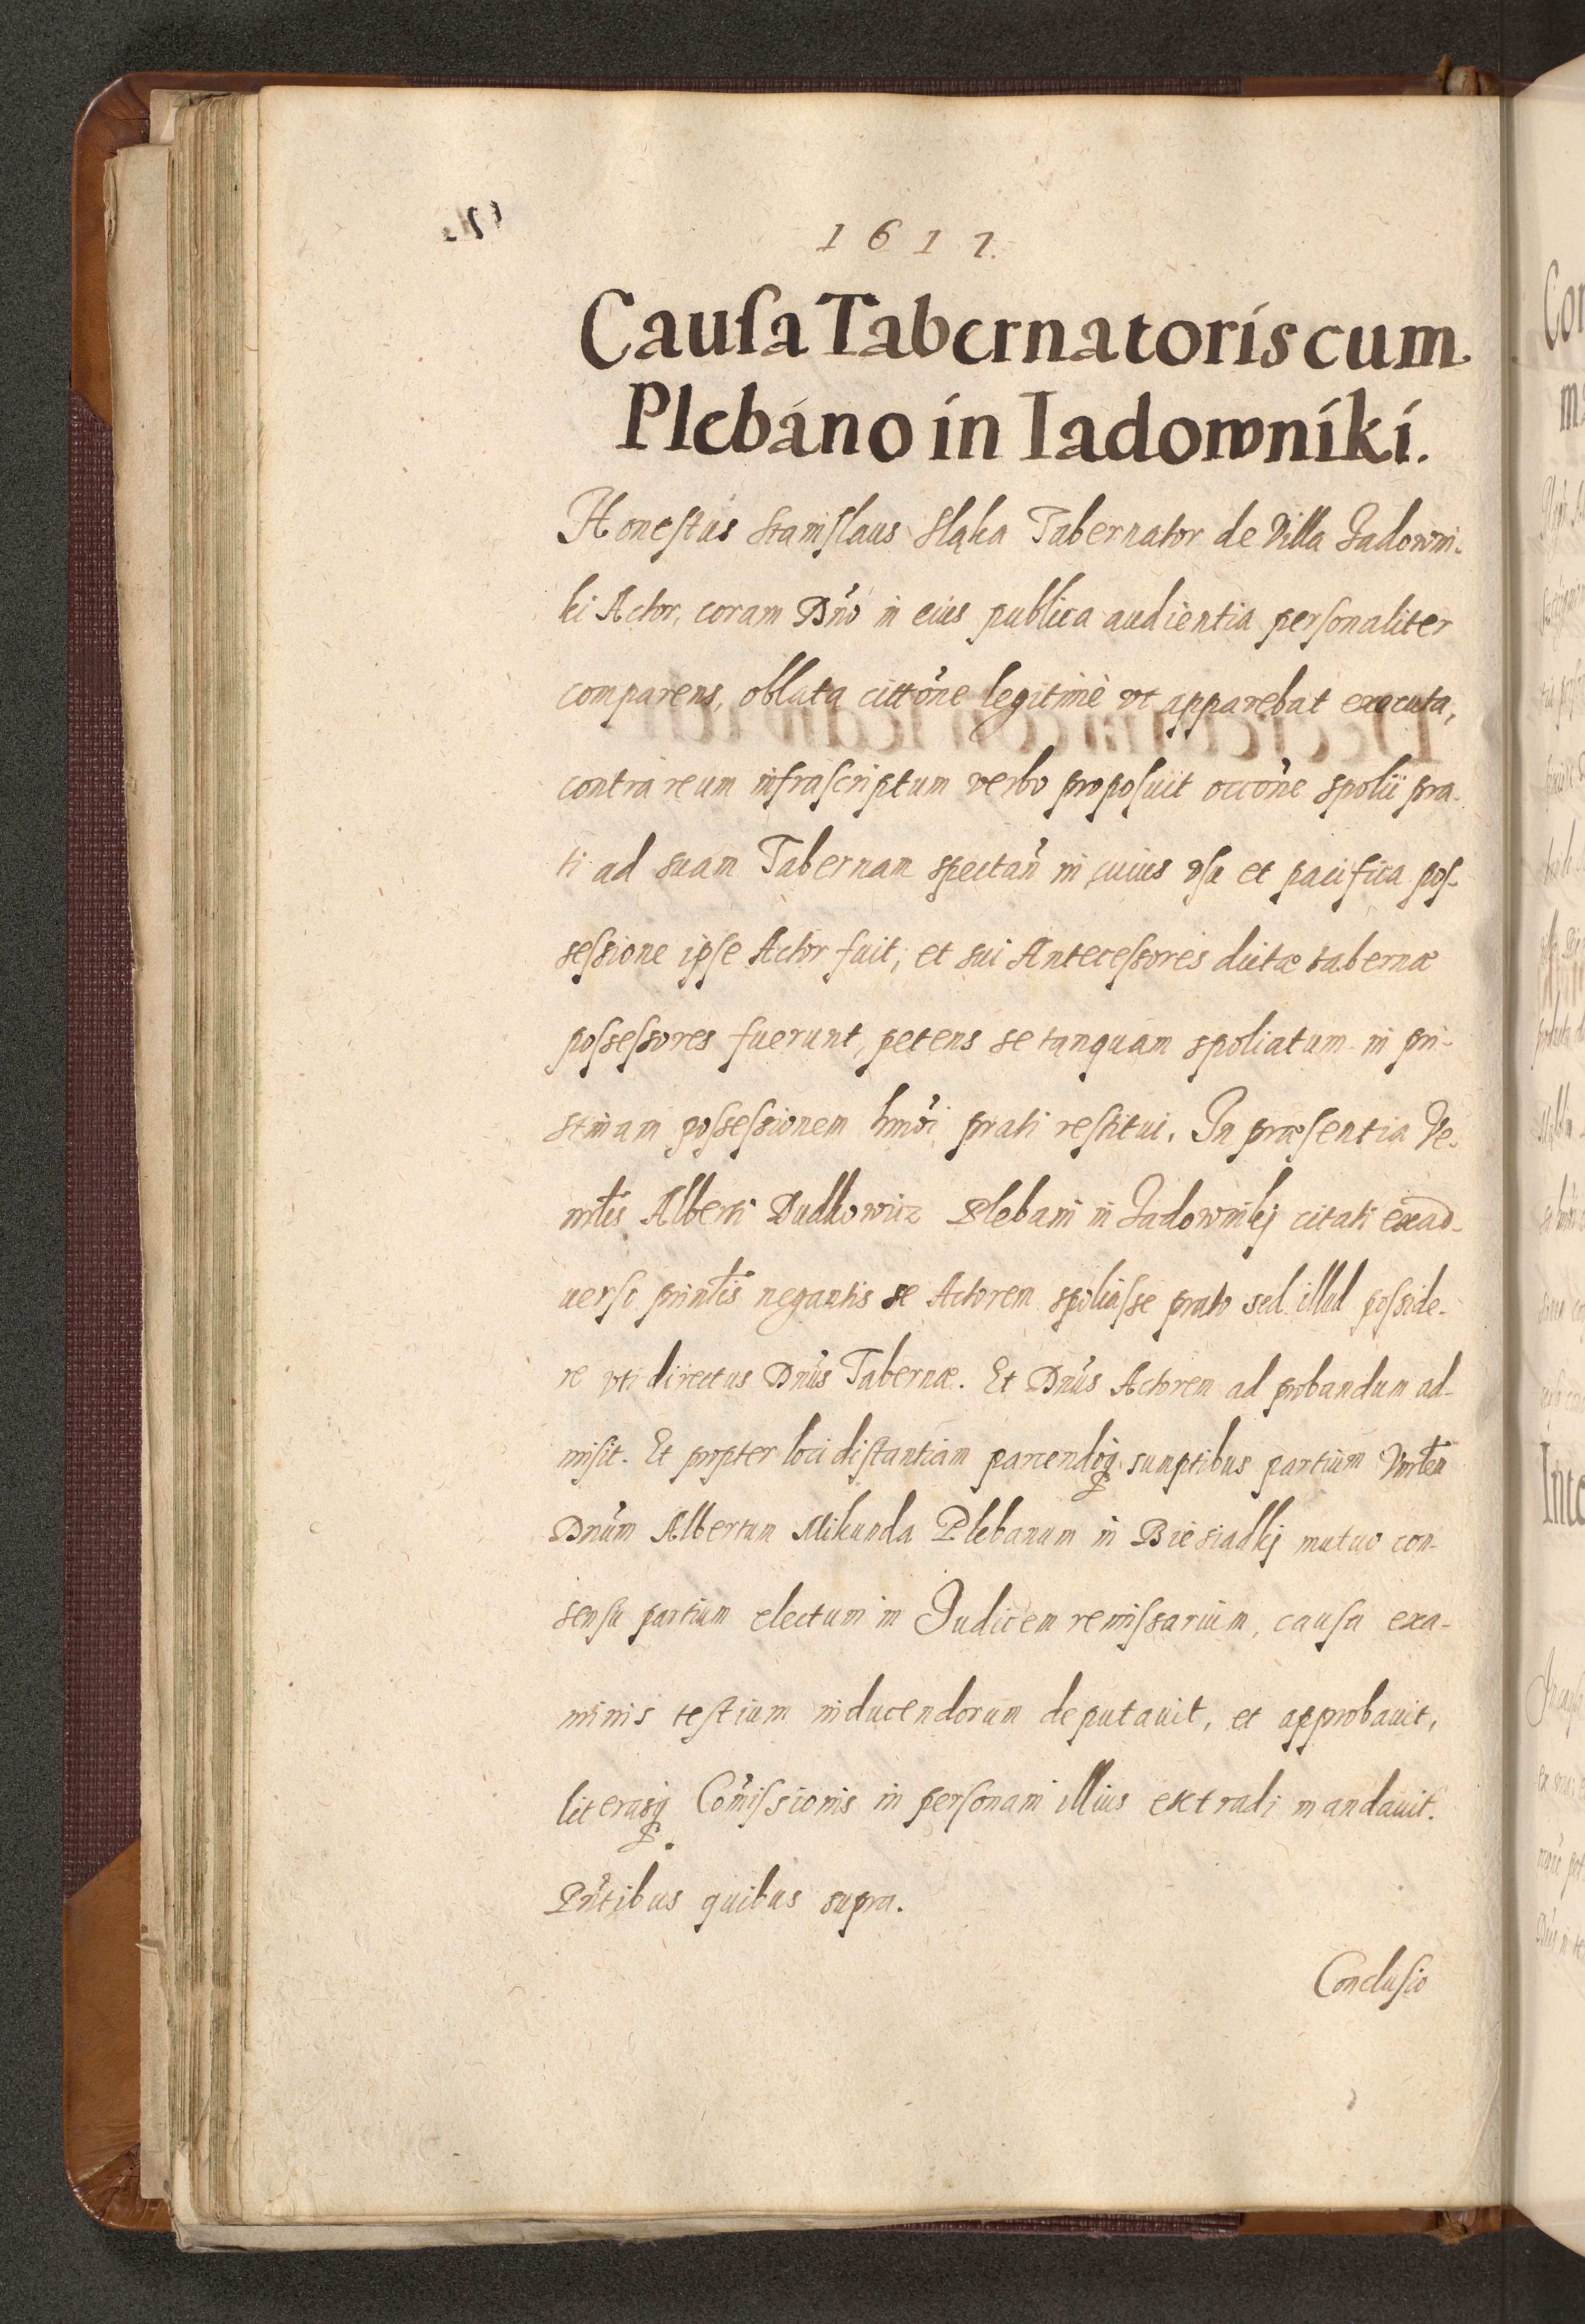 1617.
Causa Tabernatoris cum
Plebano in Iadowniki.
Honestus Stanislaus Sląka Tabernator de Villa Jadowni-
ki Actor, coram Dño in eius publica audientia personaliter
comparens, oblata cittõne legitimè vt apparebat executa,
contra reum infrascriptum verbo proposuit occõne spolii pra-
ti ad suam Tabernam spectañ in cuius vsu et pacifica pos-
sessione ipse Actor fuit, et sui Antecessores dictæ tabernæ
possessores fuerunt, petens se tanquam spoliatum in pri-
stinam possessionem hmõi prati restitui. In præsentia Ve-
nrlis Alberti Dudkowicz Plebani in Jadownikj citati exad-
uerso prinlis negantis se Actorem spoliasse prato sed illud posside-
re vti directus Dñus Tabernæ. Et Dñus Actorem ad probandum ad-
misit. Et propter loci distantiam parcendoq sumptibus partium Vnrlem
Dñum Albertum Mikunda Plebanum in Biesiadkj mutuo con-
sensu partium electum in Judicem remissarium, causa exa-
minis testium inducendorum deputauit, et approbauit,
literasq Cõmissionis in personam illius extradi mandauit.
Pñtibus quibus supra.
Conclusio